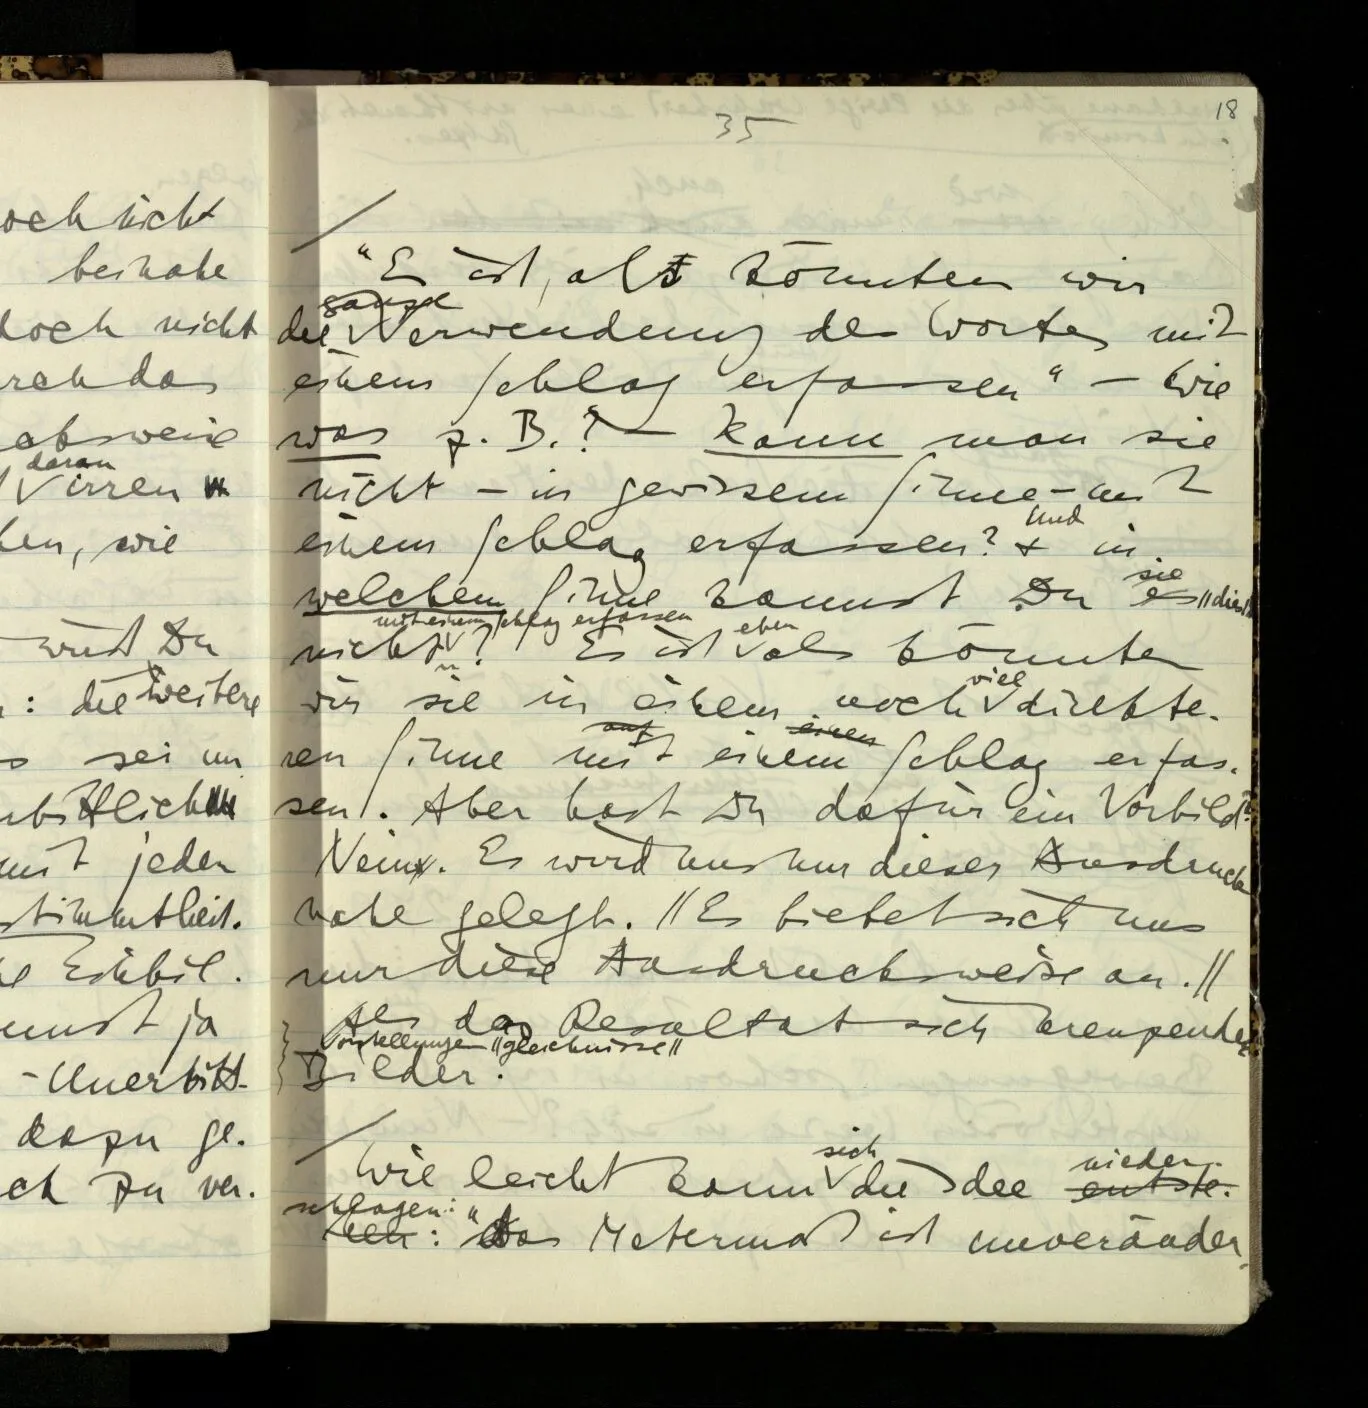 och nicht
beinahe
doch nicht
rch das
absweise
daran
irren
hen, wie
wirst Du
: die weitere
s sei un
rbittlich
mit jeder
stimmtheit.
e Einbil-
nnst ja
-Unerbitt-
dazu ge-
ch zu ver-
18
35
"Es ist, als könnten wir
ganze
die Verwendung des Wortes mit
einem Schlag erfassen" – Wie
was z. B.? – Kann man sie
nicht – in gewissem Sinne – mit
einem Schlag erfassen? Und in
sie
welchem Sinne kannst Du es //dies//
mit einem Schlag erfassen
nicht? Es ist eben als könnten
wir sie in einem noch viel direkte-
auf einen
ren Sinne mit einem Schlag erfas-
sen. Aber hast Du dafür ein Vorbild?
Nein. Es wird uns nur dieser Ausdruck
nahe gelegt. //Es bietet sich uns
nur diese Ausdrucksweise an.//
Als das Resultat sich kreuzender
Vorstellungen //Gleichnisse//
Bilder.
sich
Wie leicht kann die Idee entste-
nieder-
schlagen: "
hen: Das Metermaß ist unveränder-